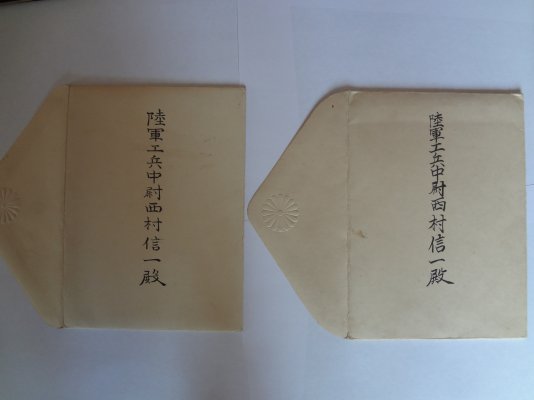 陸軍工兵中尉西村信一殿
陸軍工兵中尉西村信一殿